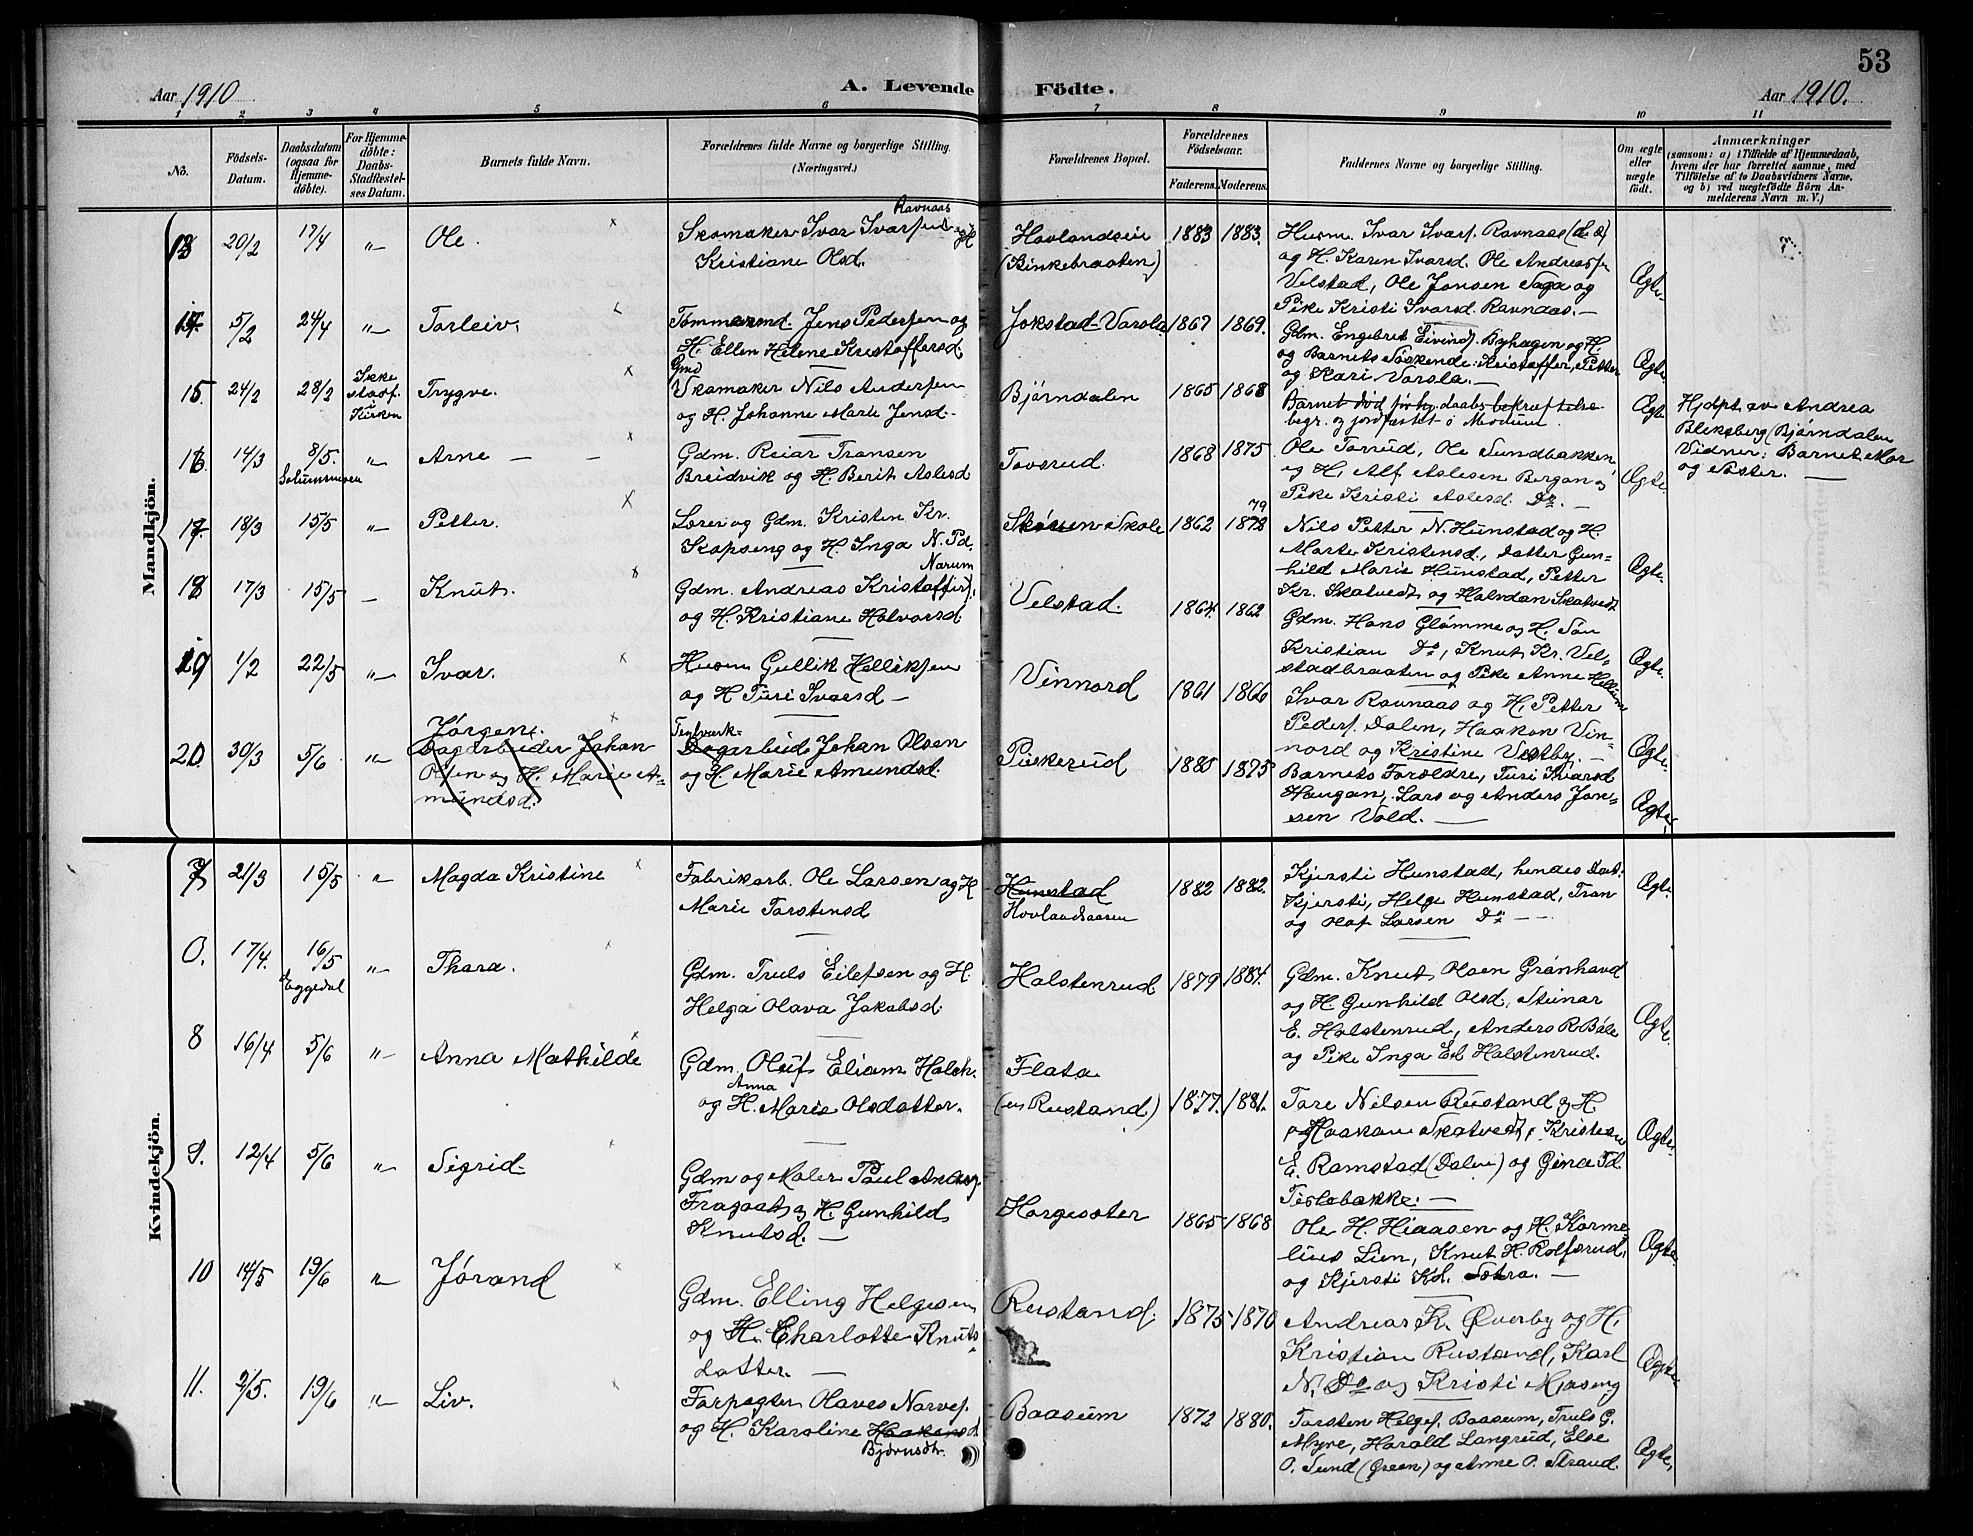 53
Aar 1910
A. Levende Födte.
Aar 1910.
1 2 3 4 5 6 7 8 9 10 11
No.
Födsels-
Datum.
Daabsdatum
(ogsaa for
Hjemme-
döbte).
For Hjemme-
döbte:
Daabs-
Stadfæstel-
ses Datum.
Barnets fulde Navn.
Forældrenes fulde Navne og borgerlige Stilling.
(Næringsvei.)
Forældrenes Bopæl.
Forældrenes
Födselsaar.
Faderens. Moderens.
Faddernes Navne og borgerlige Stilling.
Om ægte
eller
uægte
født.
Anmærkninger
(saasom: a) i Tilfælde af Hjemmedaab,
hvem der har forrettet samme, med
Tilföielse af to Daabsvidners Navne,
og b) ved uægtefödte Börn An-
melderens Navn m. V.)
Mandkjön.
20/2 17/4 " Ole.
Skomaker Ivar Ivarsen Ravnaas og H
Kristiane Olsd.
Hovlandseie
1883 1883.
Husm. Ivar Ivars. Ravnaas (d. e)
og H. Karen Ivarsd. Ole Andreas
Velstad, Ole Jonsen Saga og
Pike Kristi Ivarsd. Ravnaas.
Ægte.
5/2 24/4 " Torleiv.
Tømmermd. Jens Pedersen og
H. Ellen Helene Kristoffersd.
Jokstad-Varsla
1867 1869.
Gdm. Engebret Eivinds. Byhagen og H.
og Barnets Søskende: Kristoffer, Petter
og Kari Varsla.
Ægte.
15. 24/2 28/2
Ikke
stadf.
i
Kirken
Trygve.
Gmd
Skomaker Nils Andersen
og H. Johanne Marie Jensd.
Bjørndalen
1865 1868
Barnet død før daabs-bekræftelse
begr. og jordfæstet i Modum.
Ægte
Hjdpt. av Andrea
Bleksberg (Bjørndalen
Vidner: Barnets Mor
og Søster.
16. 14/3 8/5. " Arne
Gdm. Reiar Transen
Breidvik og H. Berit Aslesd
Tovsrud.
1868 1875
Ole Tovrud, Ole Sundbakken,
og H, Alf Aslesen Bergan og
Pike Kristi Aslesd. Do.
Ægte.
17. 18/3 15/5 " Petter.
Lærer og Gdm. Kristen Kr.
Skapseng og H. Inga N. Pd.
Narum
Skoven Skole
1862 79
Nils Petter N. Hunstad og H.
Marte Kristensd., Datter Gun-
hild Marie Hunstad, Petter
Kr. Skatvedt og Halvdan Skatvedt
Ægte.
18 17/3 15/5 Knut.
Gdm. Andreas Kristoffers.
og H. Kristiane Halvorsd.
Velstad.
1864. 1862
Gdm. Hans Glømme og H. Søn
Kristian Do, Knut Kr. Vel-
stadbraaten og Pike Anne Hellum
Ægte.
19 1/2 22/5 " Ivar.
Husm Gullik Helliksen
og H Turi Ivarsd
Vinnord
1861 1866
Ivar Ravnaas og H. Petter
Peders. Dalen, Haakon Vin-
nord og Kristine Vestby.
Ægte.
20. 30/3 5/6 " Jørgen.
Dagarbeider Johan
Olsen og H. Marie A-
mundsd.
Teglverk-
Dagarbeid. Johan Olsen
og H Marie Amundsd.
Puskerud
1885 1875
Barnets Forældre, Turi Ivarsd
Haugan, Lars og Anders Jon-
sen Vold.
Ægte.
Kvindekjön.
7 21/3 15/5 " Magda Kristine
Fabrikarb. Ole Larsen og H
Marie Torstensd
Hunstad
Hovlandsaasen
1882 1882.
Kjersti Hunstad, hendes Dat.
Kjersti, Helge Hunstad, Tran
og Olaf Larsen Do
Ægte.
0. 17/4. 16/5
Eggedal
" Thora.
Gdm. Truls Eilefsen og H.
Helga Olava Jakobsd.
Halstenrud
1879 1884.
Gdm. Knut Olsen Grønhovd
og H. Gunhild Olsd, Steinar
E. Halstenrud, Anders R. Bøle
og Pike Inga E. Halstenrud.
Ægte.
8 16/4 5/6 " Anna Mathilde
Gdm. Oluf Eliam Halch.
og H. Anna Marie Olsdatter.
Flata
(en Rustand)
1877. 1881.
Tore Nilsen Rustand og H.
og Haakon Skatvedt, Kristian
E. Ramstad (Dalen) og Gina Td.
Tislebakke.
Ægte.
9. 12/4 5/6 " Sigrid.
Gdm og Maler Paul Anders.
Fragaat og H. Gunhild
Knutsd.
Horgesæter
1865 1868
Ole H. Hiaasen og H. Korne-
lius Lien, Knut H. Rolfsrud,
og Kjersti Kd. Sætra.
Ægte.
10 14/5 19/6 " Jørand
Gdm. Elling Helgesen
og H. Charlotte Knuts-
datter.
Rustand.
1875 1870
Andreas K. Øverby og H.
Kristian Rustand, Karl
N. Do og Kristi Moseng
Ægte.
11. 2/5. 19/6 " Liv.
Forpagter Olaves Narves.
og H. Karoline Haakensd
Bjørnsdtr.
Baasum
1872 1880.
Torsten Helges. Baasum, Truls G.
Myre, Harald Langrud, Else
O. Sund (Green) og Anne O. Strand.
Ægte.